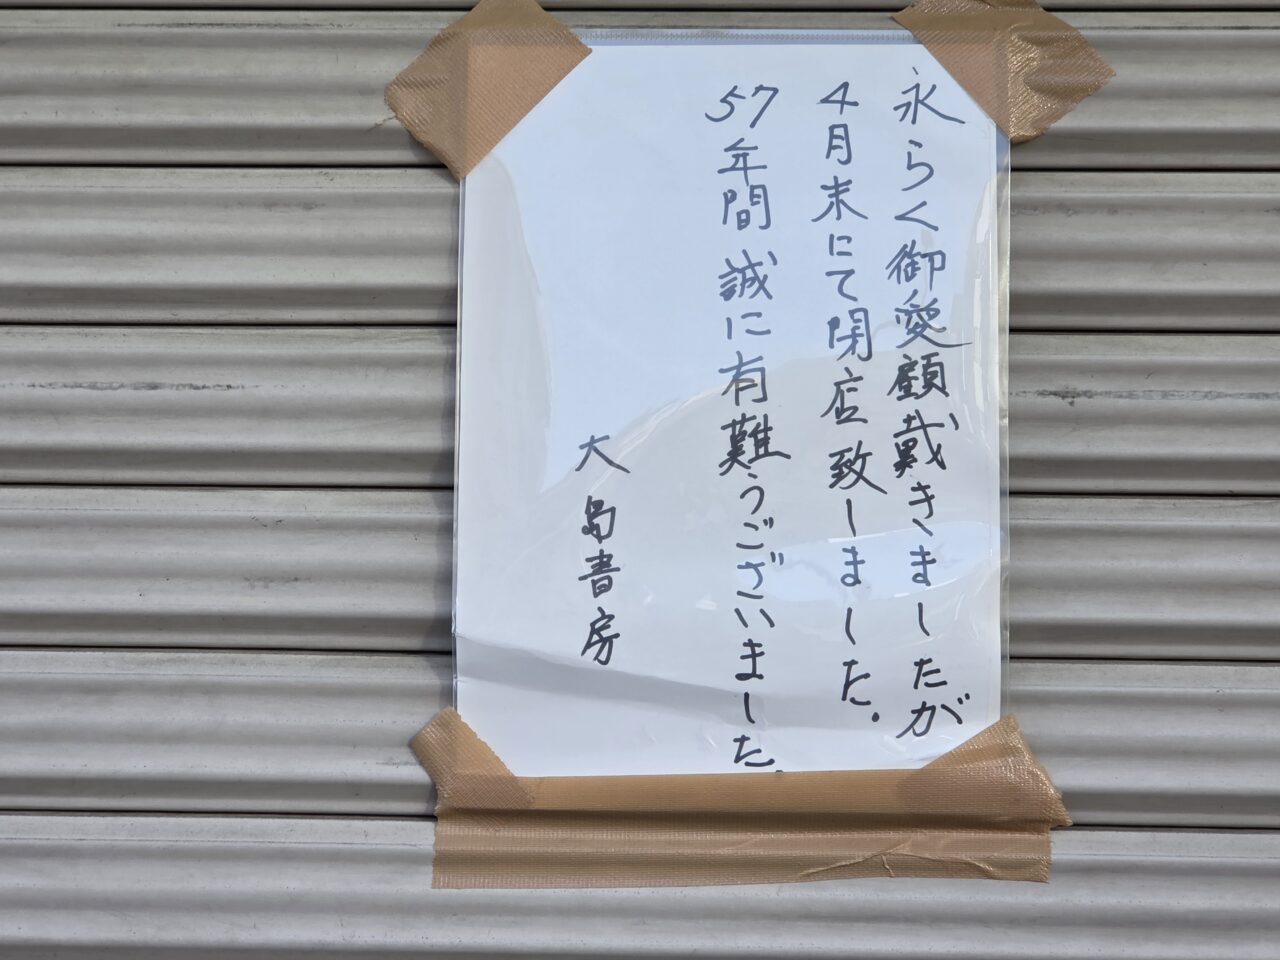 永らく御愛顧戴きましたが
4月末にて閉店致しました。
57年間誠に有難うございました.
大島書房